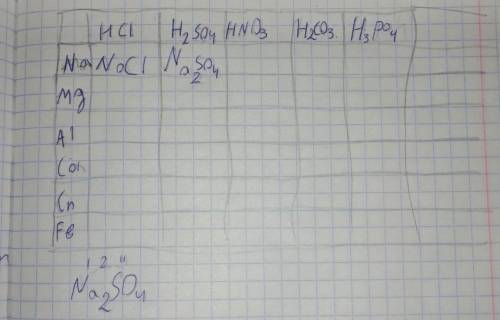 HCl H₂SO₄ HNO₃ H₂CO₃ H₃PO₄
Na NaCl Na₂SO₄
Mg
Al
Fe
I 2 II
Na₂SO₄